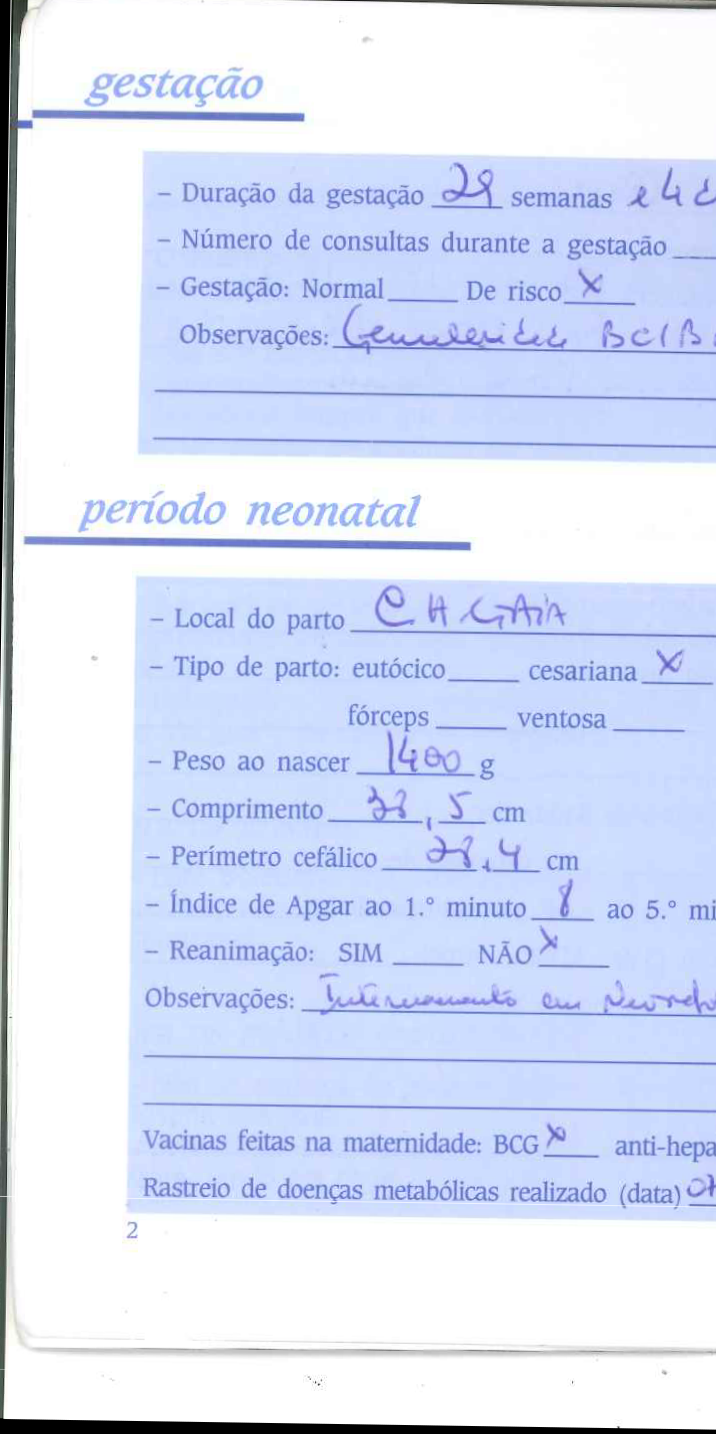 gestação
– Duração da gestação 29 semanas e 4
– Número de consultas durante a gestação
– Gestação: Normal De risco X
Observações: Gemelaridade BC/B
período neonatal
– Local do parto CH GAIA
– Tipo de parto: eutócico cesariana X
fórceps ventosa
– Peso ao nascer 1400 g
– Comprimento 38,5 cm
– Perímetro cefálico 28,4 cm
– Índice de Apgar ao 1.º minuto 8 ao 5.º mi
– Reanimação: SIM NÃO X
Observações: Internamento em
Vacinas feitas na maternidade: BCG X anti-hepa
Rastreio de doenças metabólicas realizado (data) 07
2